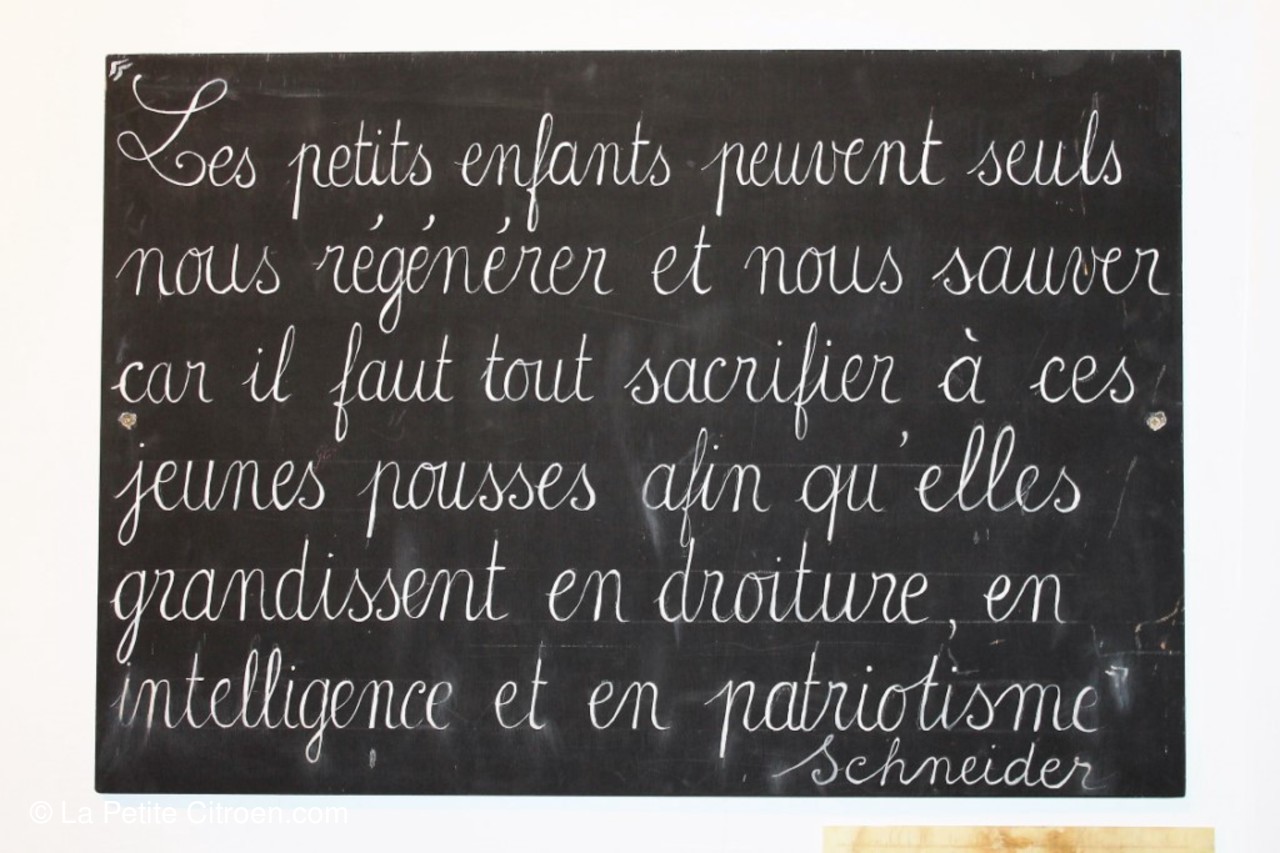 "Les petits enfants peuvent seuls
nous régénérer et nous sauver
car il faut tout sacrifier à ces
jeunes pousses afin qu'elles
grandissent en droiture, en
intelligence et en patriotisme"
Schneider
© La Petite Citroen.com